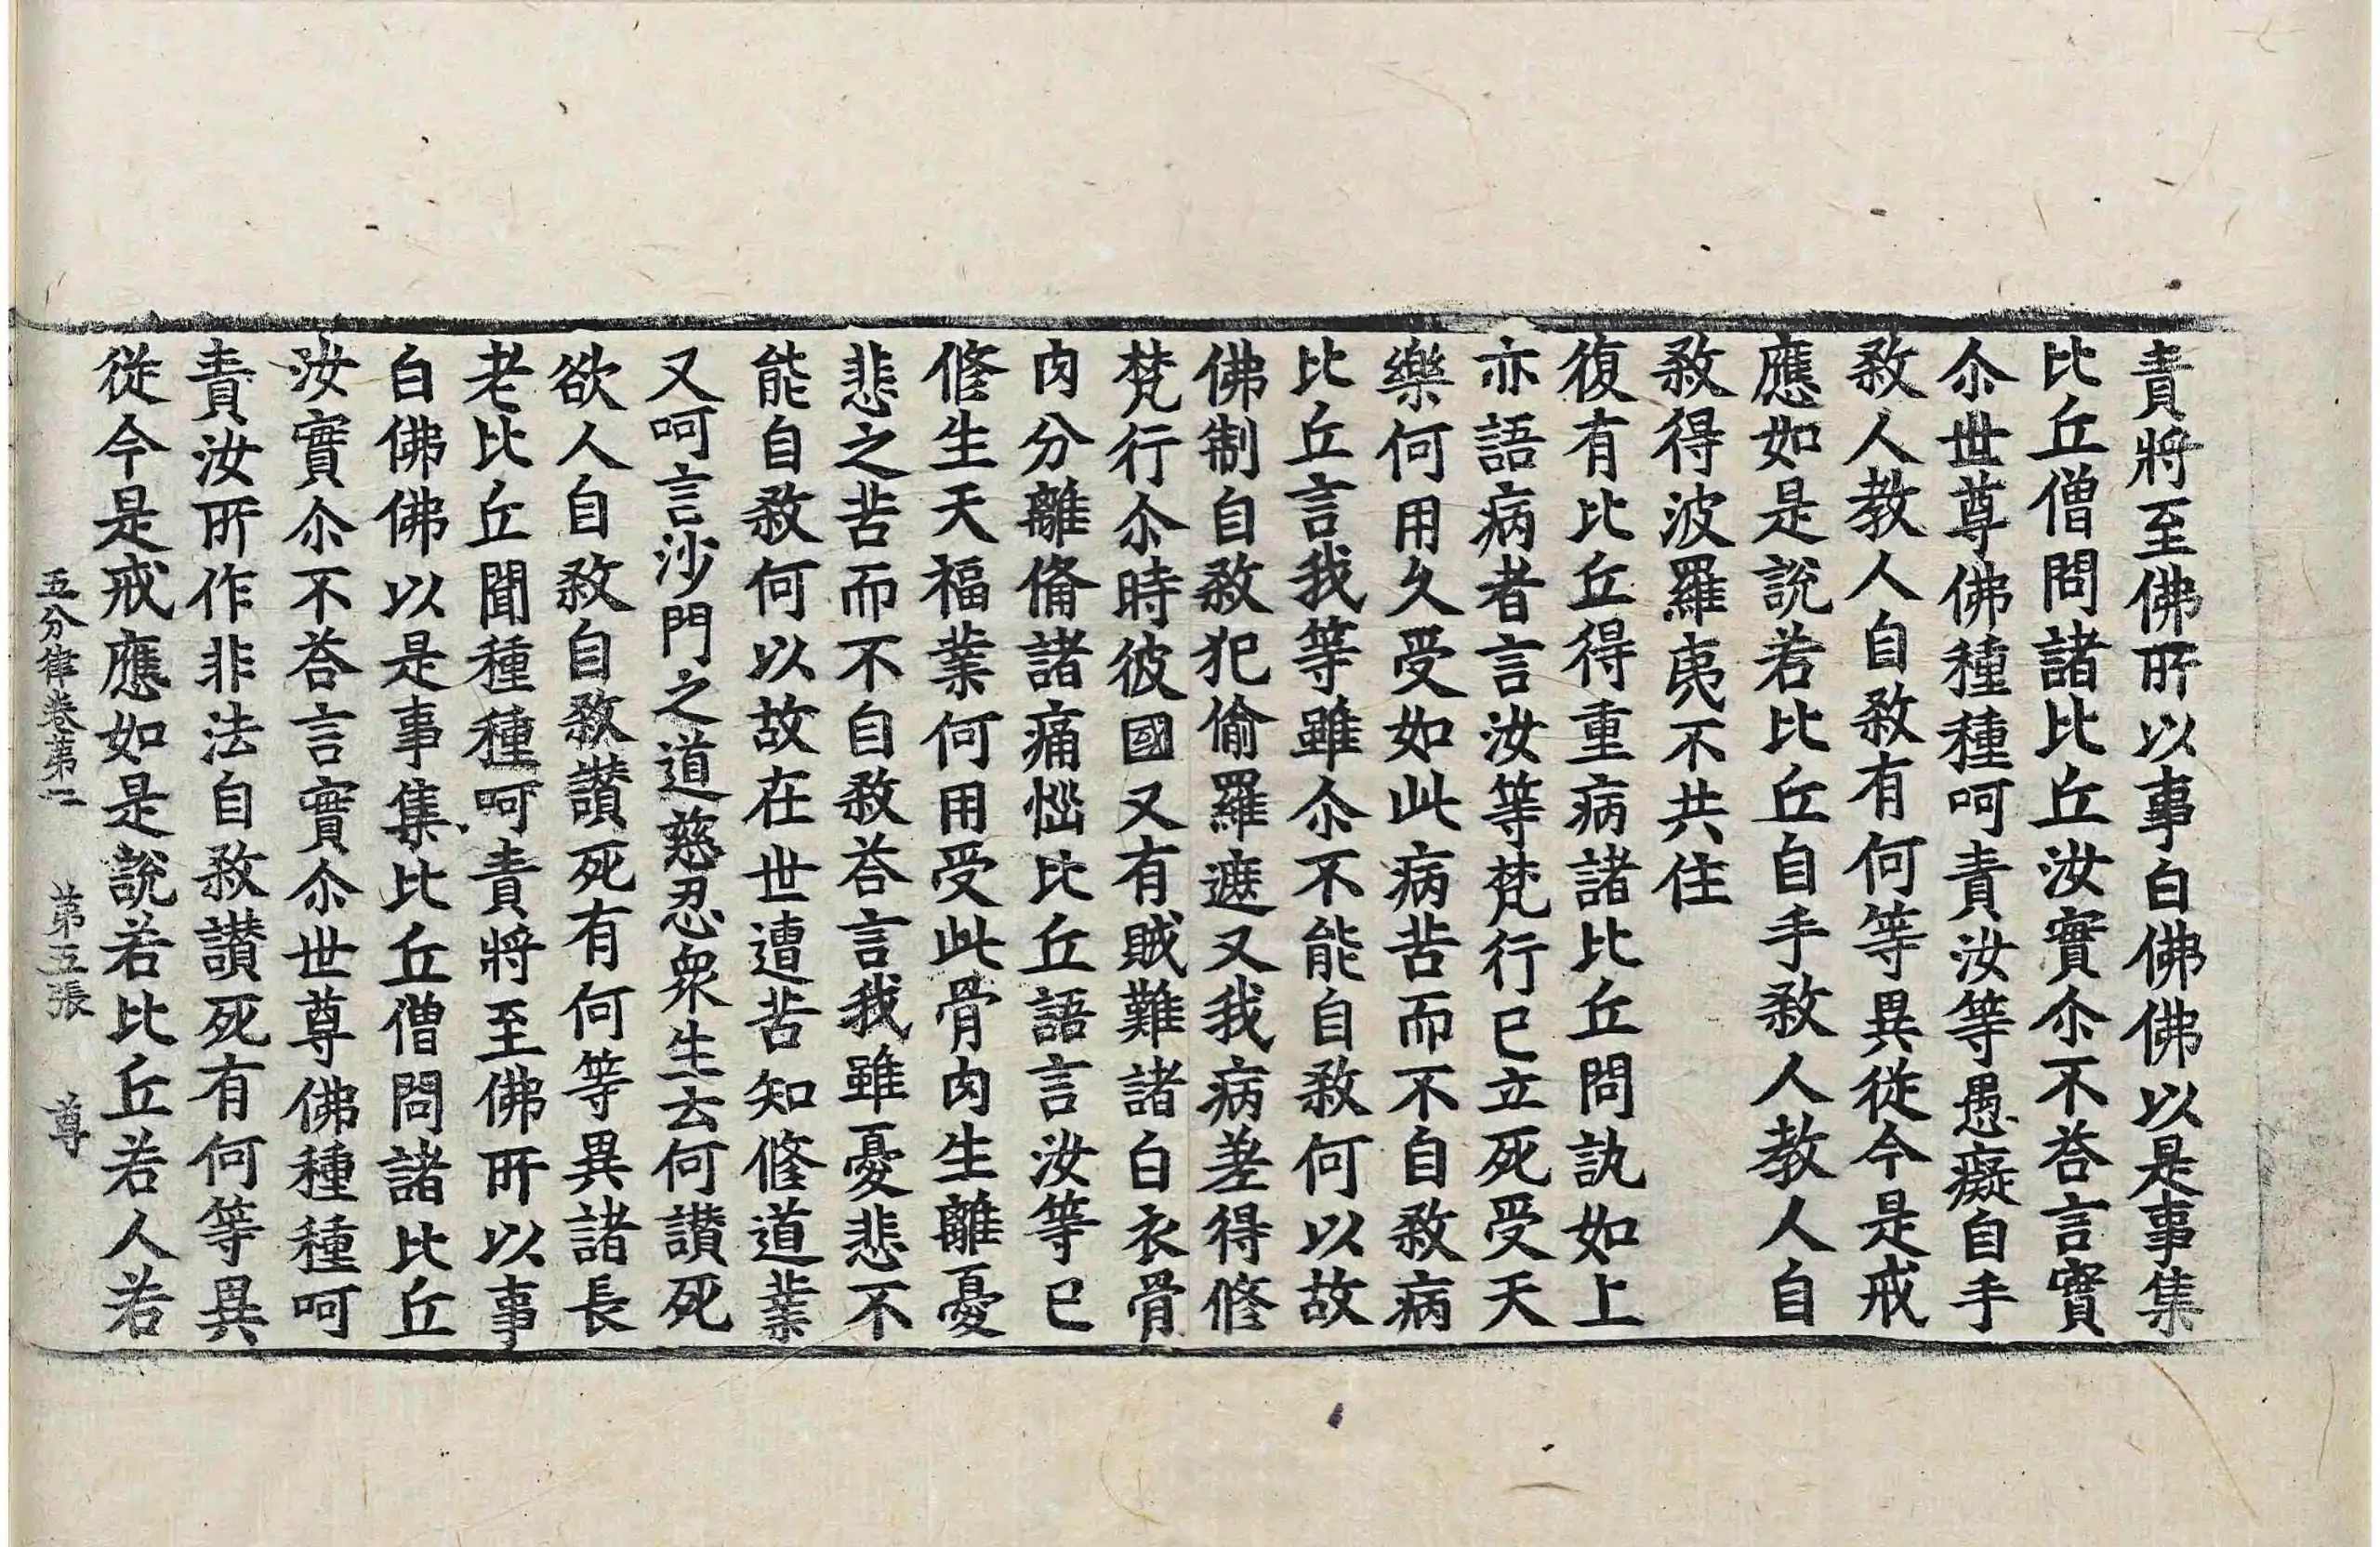 責將至佛所以事白佛佛以是事集
比丘僧問諸比丘汝實尒不荅言實
尒世尊佛種種呵責汝等愚癡自手
煞人教人自煞有何等異從今是戒
應如是說若比丘自手煞人教人自
煞得波羅夷不共住
復有比丘得重病諸比丘問訊如上
亦語病者言汝等梵行已立死受天
樂何用久受如此病苦而不自煞病
比丘言我等雖尒不能自煞何以故
佛制自煞犯偷羅遮又我病差得修
梵行尒時彼國又有賊難諸白衣骨
肉分離俻諸痛惱比丘語言汝等已
修生天福業何用受此骨肉生離憂
悲之苦而不自煞荅言我雖憂悲不
能自煞何以故在世遭苦知修道業
又呵言沙門之道慈忍衆生云何讃死
欲人自煞自煞讃死有何等異諸長
老比丘聞種種呵責將至佛所以事
白佛佛以是事集比丘僧問諸比丘
汝實尒不荅言實尒世尊佛種種呵
責汝所作非法自煞讃死有何等異
從今是戒應如是說若比丘若人若
五分律卷第二 第五張 尊